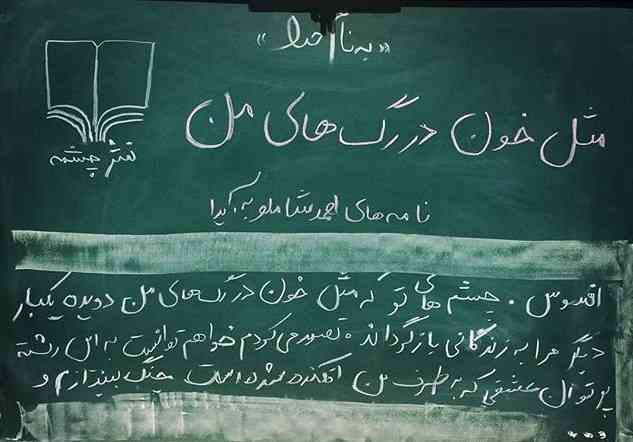 «به نام خدا»
مثل خون در رگ های من
نشر چشمه
نامه های احمد شاملو به: آیدا
افسوس . چشم های تو که مثل خون در رگ های من دویده یکبار
دیگر مرا به زندگانی بازگرداند. تصور می کردم خواهم توانست به این رشته
پر توان عشقی که به طرف من افکنده شده است چنگ بیندازم و
....